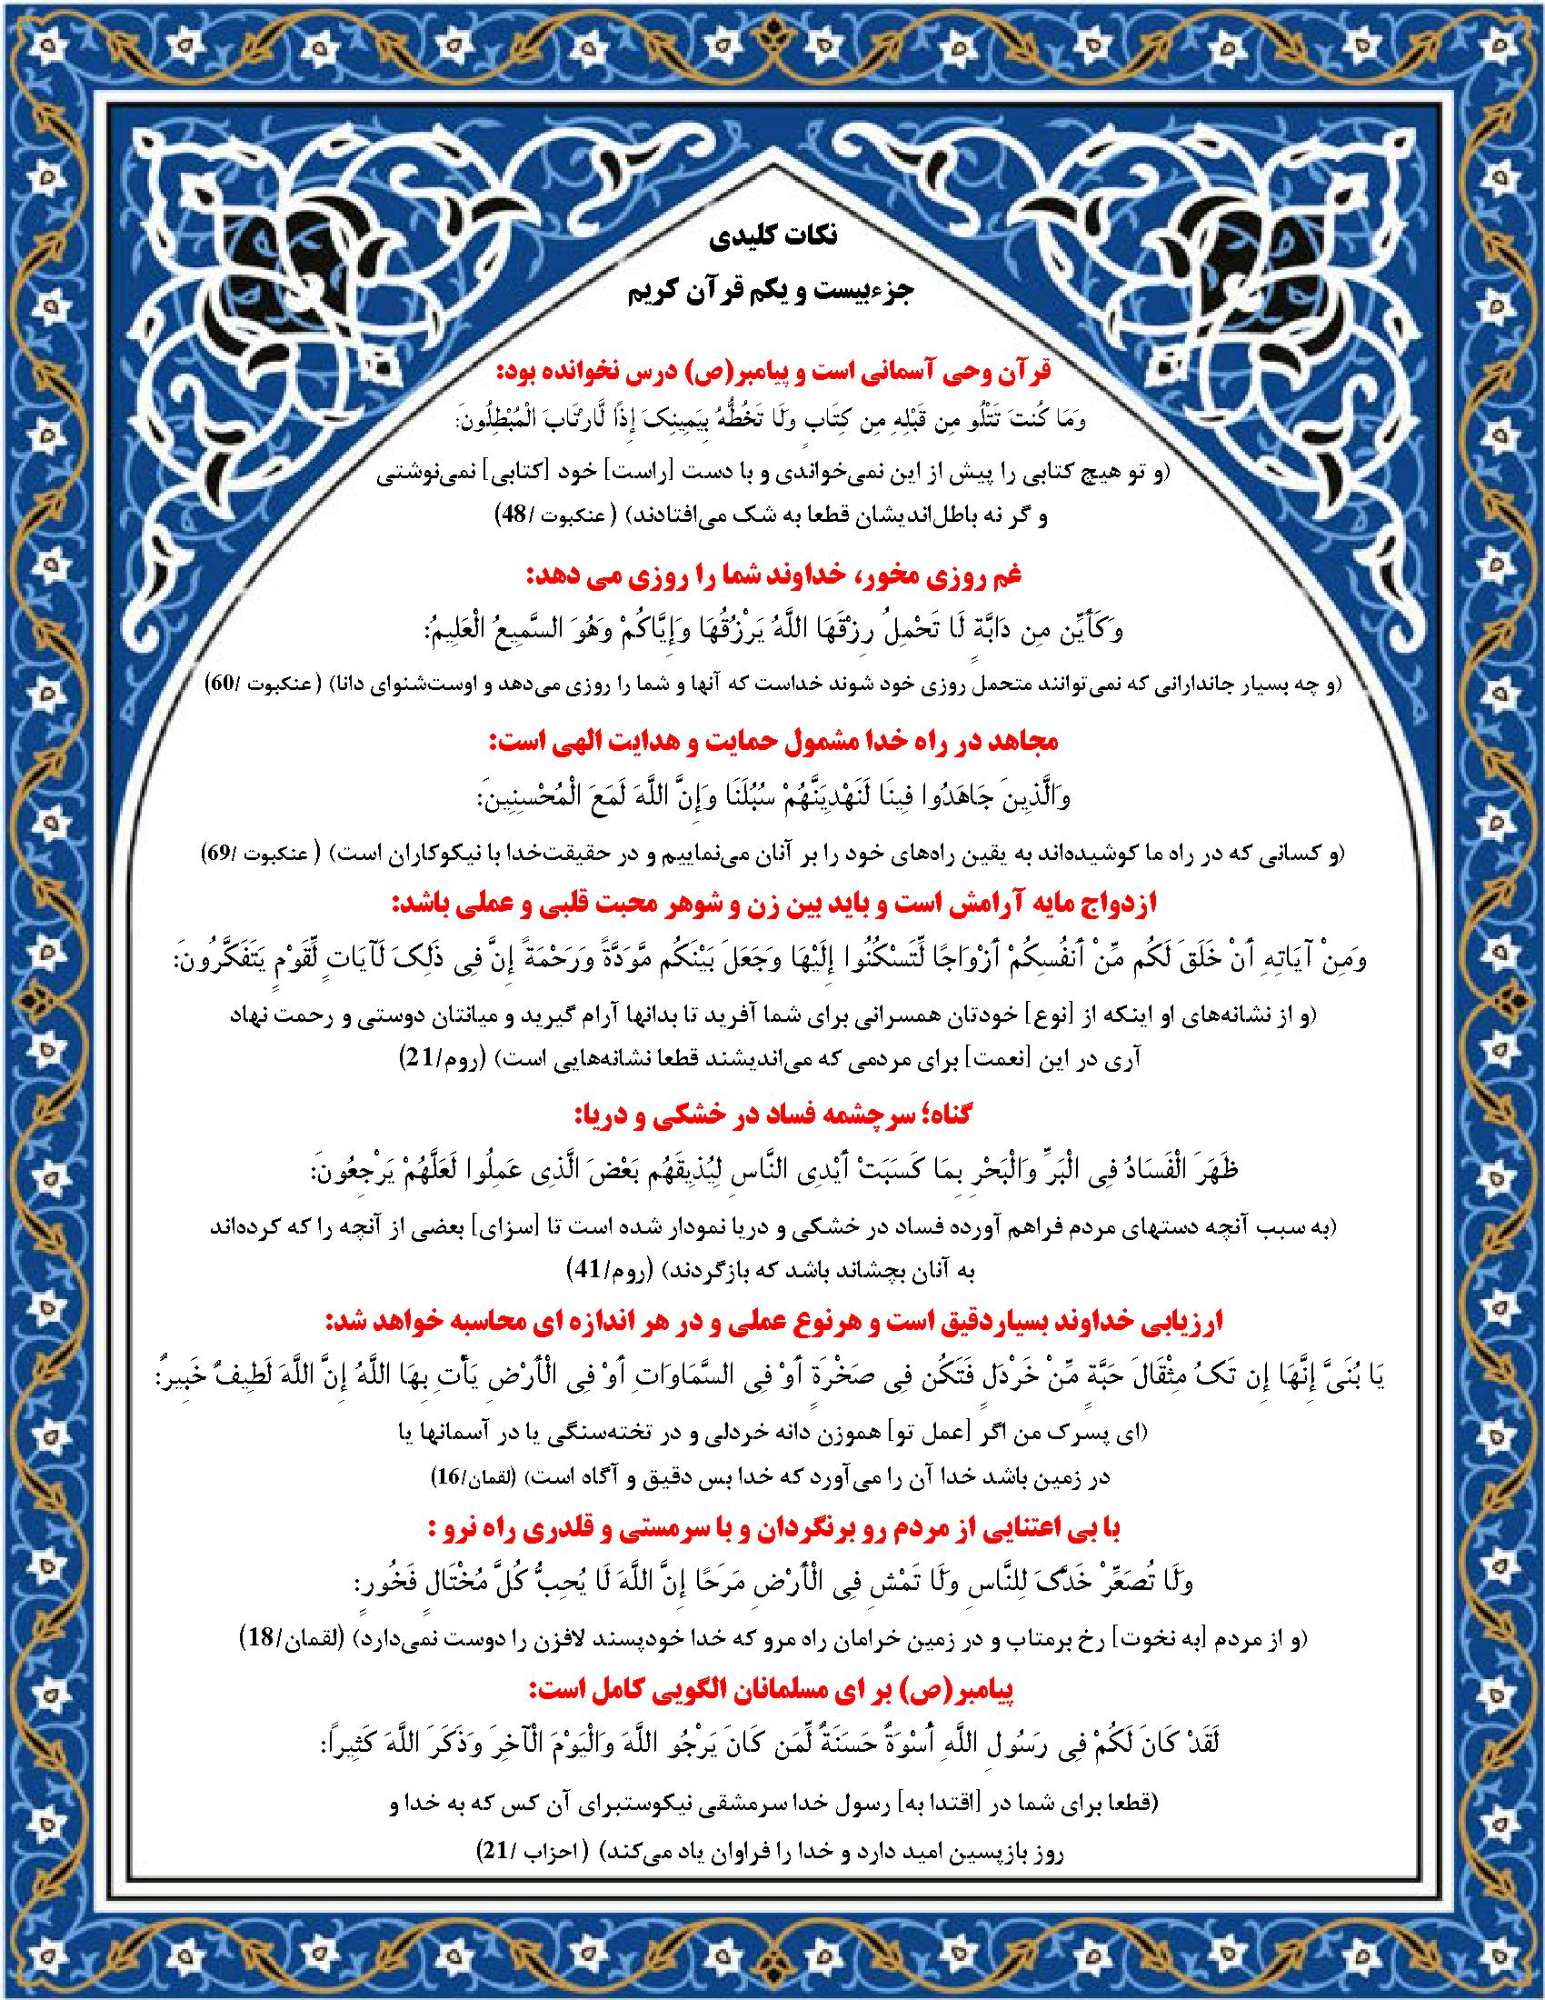 نکات کلیدی
جزءبیست و یکم قرآن کریم
قرآن وحی آسمانی است و پیامبر(ص) درس نخوانده بود:
وَمَا كُنتَ تَتْلُو مِن قَبْلِهِ مِن كِتَابٍ وَلَا تَخُطُّهُ بِيَمِينِکَ إِذًا لَّارْتَابَ الْمُبْطِلُونَ:
(و تو هیچ کتابی را پیش از این نمی‌خواندی و با دست [راست] خود [کتابی] نمی‌نوشتی
و گر نه باطل‌اندیشان قطعا به شک می‌افتادند) ( عنکبوت /48)
غم روزی مخور، خداوند شما را روزی می دهد:
وَكَأَيِّن مِن دَابَّةٍ لَا تَحْمِلُ رِزْقَهَا اللَّهُ يَرْزُقُهَا وَإِيَّاكُمْ وَهُوَ السَّمِيعُ الْعَلِيمُ:
(و چه بسیار جاندارانی که نمی‌توانند متحمل روزی خود شوند خداست که آنها و شما را روزی می‌دهد و اوست‌شنوای دانا) ( عنکبوت /60)
مجاهد در راه خدا مشمول حمایت و هدایت الهی است:
وَالَّذِينَ جَاهَدُوا فِينَا لَنَهْدِيَنَّهُمْ سُبُلَنَا وَإِنَّ اللَّهَ لَمَعَ الْمُحْسِنِينَ:
(و کسانی که در راه ما کوشیده‌اند به یقین راه‌های خود را بر آنان می‌نماییم و در حقیقت‌خدا با نیکوکاران است) ( عنکبوت /69)
ازدواج مایه آرامش است و باید بین زن و شوهر محبت قلبی و عملی باشد:
وَمِنْ آيَاتِهِ أَنْ خَلَقَ لَكُم مِّنْ أَنفُسِكُمْ أَزْوَاجًا لِّتَسْكُنُوا إِلَيْهَا وَجَعَلَ بَيْنَكُم مَّوَدَّةً وَرَحْمَةً إِنَّ فِی ذَلِکَ لَآيَاتٍ لِّقَوْمٍ يَتَفَكَّرُونَ:
(و از نشانه‌های او اینکه از [نوع] خودتان همسرانی برای شما آفرید تا بدانها آرام گیرید و میانتان دوستی و رحمت نهاد
آری در این [نعمت] برای مردمی که می‌اندیشند قطعا نشانه‌هایی است) (روم/21)
گناه؛ سرچشمه فساد در خشکی و دریا:
ظَهَرَ الْفَسَادُ فِی الْبَرِّ وَالْبَحْرِ بِمَا كَسَبَتْ أَيْدِی النَّاسِ لِيُذِيقَهُم بَعْضَ الَّذِی عَمِلُوا لَعَلَّهُمْ يَرْجِعُونَ:
(به سبب آنچه دستهای مردم فراهم آورده فساد در خشکی و دریا نمودار شده است تا [سزای] بعضی از آنچه را که کرده‌اند
به آنان بچشاند باشد که بازگردند) (روم/41)
ارزیابی خداوند بسیاردقیق است و هرنوع عملی و در هر اندازه ای محاسبه خواهد شد:
يَا بُنَیَّ إِنَّهَا إِن تَکُ مِثْقَالَ حَبَّةٍ مِّنْ خَرْدَلٍ فَتَكُن فِی صَخْرَةٍ أَوْ فِی السَّمَاوَاتِ أَوْ فِی الْأَرْضِ يَأْتِ بِهَا اللَّهُ إِنَّ اللَّهَ لَطِيفٌ خَبِيرٌ:
(ای پسرک من اگر [عمل تو] هموزن دانه خردلی و در تخته‌سنگی یا در آسمانها یا
در زمین باشد خدا آن را می‌آورد که خدا بس دقیق و آگاه است) (لقمان/16)
با بی اعتنایی از مردم رو برنگردان و با سرمستی و قلدری راه نرو :
وَلَا تُصَعِّرْ خَدَّکَ لِلنَّاسِ وَلَا تَمْشِ فِی الْأَرْضِ مَرَحًا إِنَّ اللَّهَ لَا يُحِبُّ كُلَّ مُخْتَالٍ فَخُورٍ:
(و از مردم [به نخوت] رخ برمتاب و در زمین خرامان راه مرو که خدا خودپسند لافزن را دوست نمی‌دارد) (لقمان/18)
پیامبر(ص) بر ای مسلمانان الگویی کامل است:
لَقَدْ كَانَ لَكُمْ فِی رَسُولِ اللَّهِ أُسْوَةٌ حَسَنَةٌ لِّمَن كَانَ يَرْجُو اللَّهَ وَالْيَوْمَ الْآخِرَ وَذَكَرَ اللَّهَ كَثِيراً:
(قطعا برای شما در [اقتدا به] رسول خدا سرمشقی نیکوستبرای آن کس که به خدا و
روز بازپسین امید دارد و خدا را فراوان یاد می‌کند) ( احزاب /21)